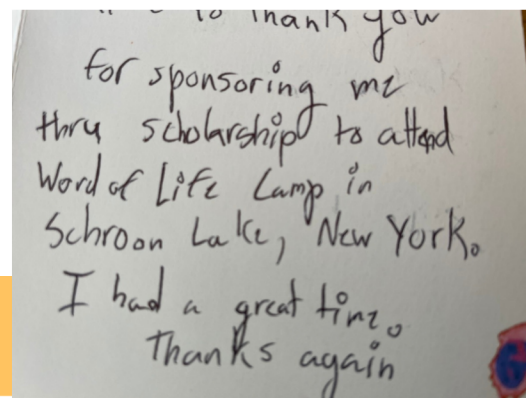 to thank you
for sponsoring me
thru scholarship to attend
Word of Life Camp in
Schroon Lake, New York.
I had a great time.
Thanks again